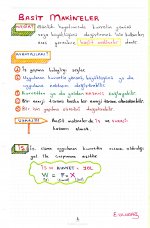 BASİT MAKİNELER
Günlük hayatımızda kuvvetin yönünü
veya büyüklüğünü değiştirmek için kullanılan
araç gereçlere basit makineler denir.
AVANTAJLARI
İş yapma kolaylığı sağlar.
Uygulanan kuvvetin yönünü, büyüklüğünü ya da
uygulama noktasını değiştirebilir.
Kuvvetten ya da yoldan kazanç sağlayabilir.
Bir enerji türünü başka bir enerji türüne dönüştürebilir.
Bir işin yapılma süresini değiştirebilir.
UYARI!!! Basit makinelerde İş ve enerji
kazancı olmaz.
İŞ Bir cisme uygulanan kuvvetin cismin aldığı
yol ile çarpımına eşittir.
İŞ = KUVVET . YOL
W = F . X